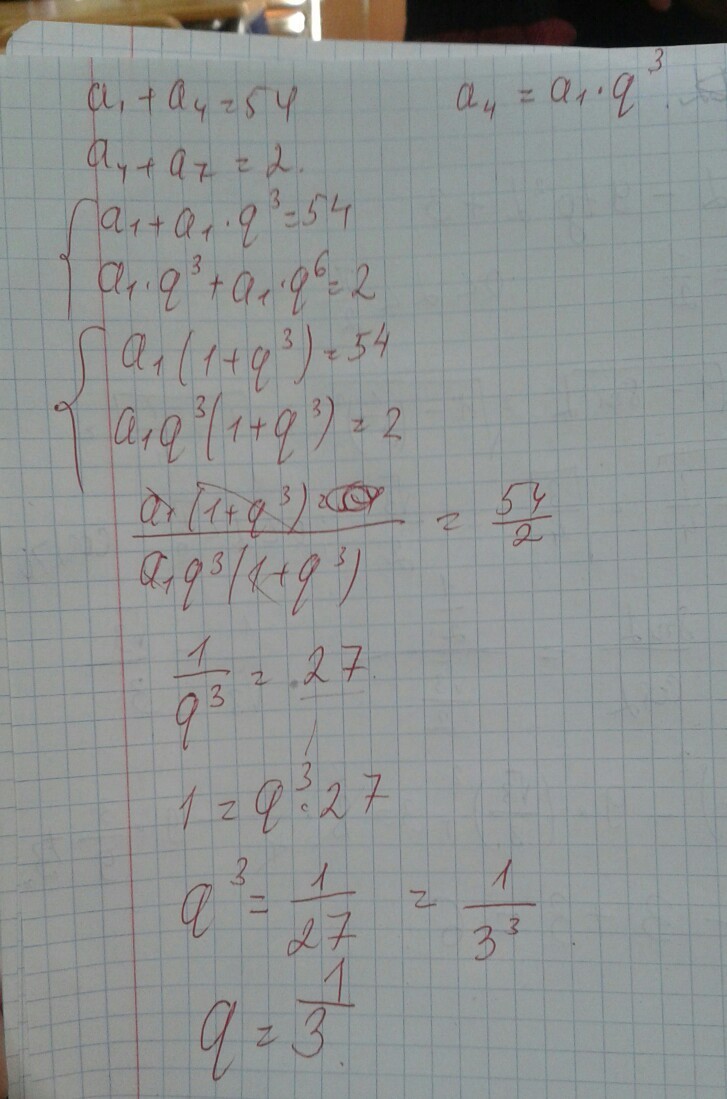 a₁ + a₄ = 54 a₄ = a₁ · q³
a₄ + a₇ = 2.
{ a₁ + a₁ · q³ = 54
a₁ · q³ + a₁ · q⁶ = 2
{ a₁ (1 + q³) = 54
a₁q³ (1 + q³) = 2
a₁ (1 + q³) = / a₁q³ (1 + q³) = 54/2
1/q³ = 27
1 = q³ · 27
q³ = 1/27 = 1/3³
q = 1/3.